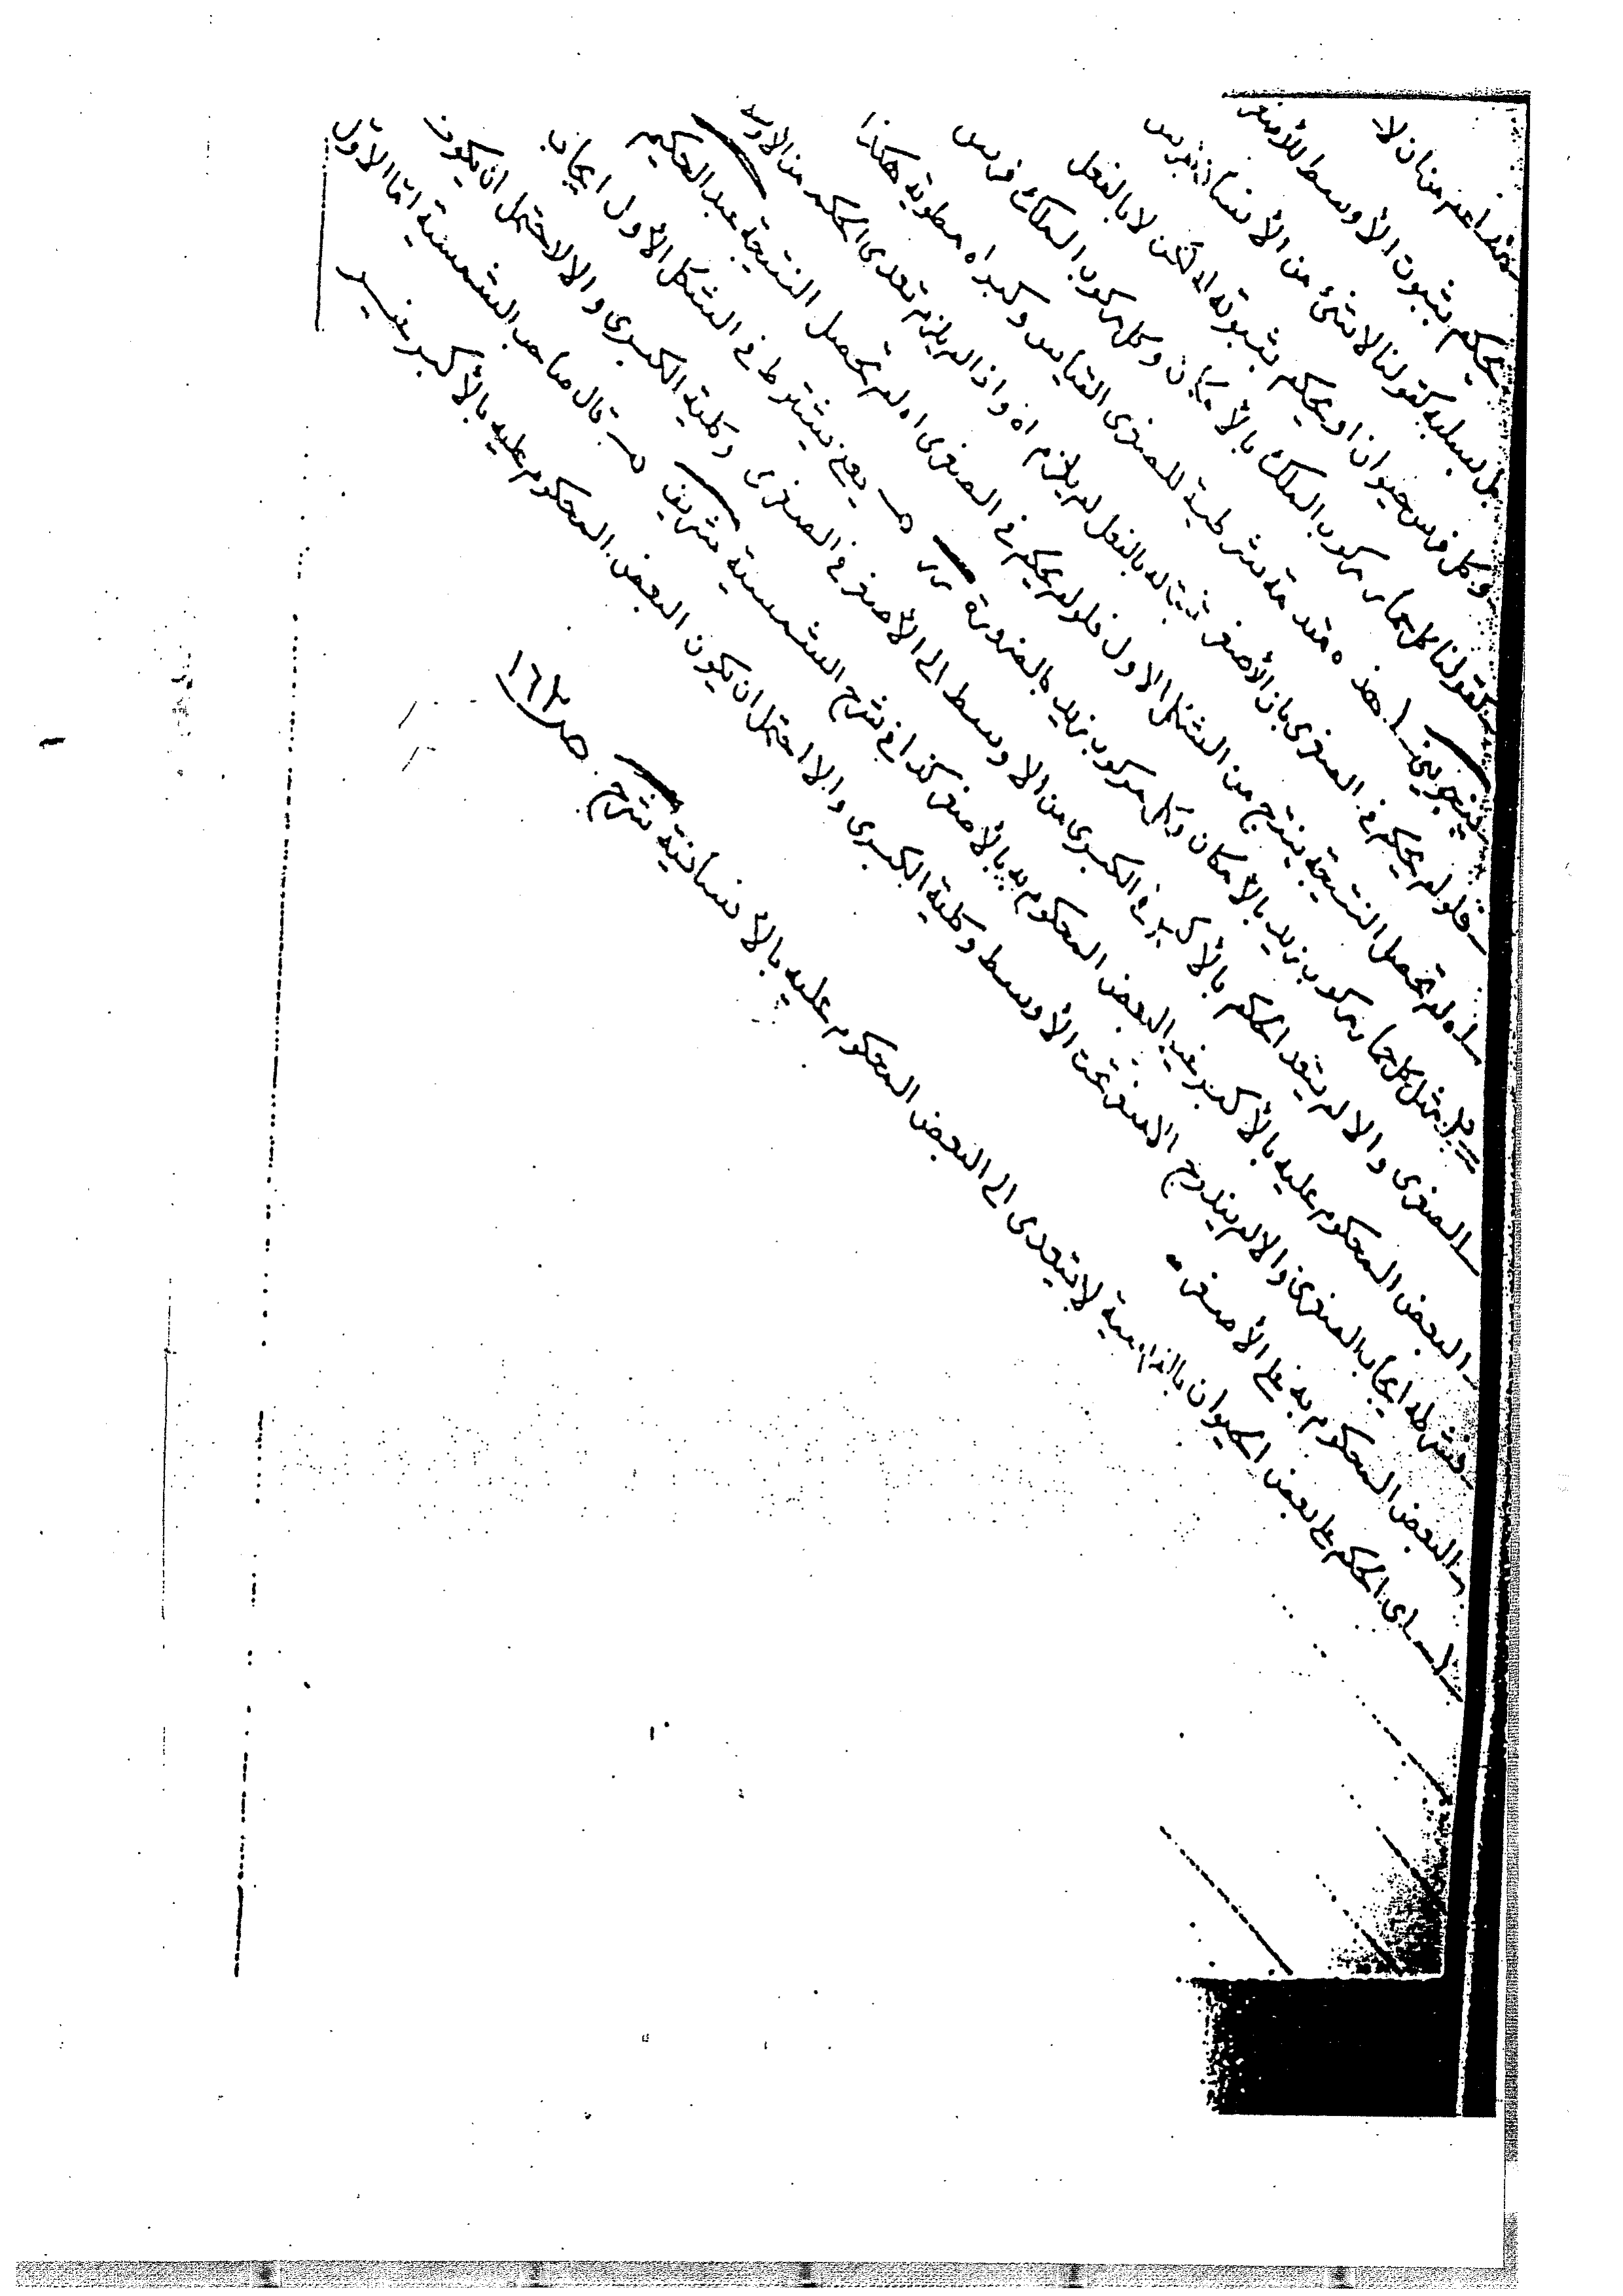 هذا أعم من ان لا
يحكم بثبوت الأوسط للأصغر
بل بسلبه كقولنا لا شئ من الأنسان بفرس
وكل فرس حيوان او يحكم بثبوته له لكن لا بالفعل
كقولنا كل حمار مركوب الملك بالأمكان وكل مركوب الملك فرس
ينجويني هذه مقدمة شرطية للصغرى القياس وكبراه مطوية هكذا
فلو لم يحكم في الصغرى بان الأصغر ثبت له بالفعل لم يلزم اه واذا لم يلزم تعدى الحكم من الاوسط
لم تحصل النتيجة ينتج من الشكل الاول فلو لم يحكم في الصغرى اه لم تحصل النتيجة عبد الحكيم
مثل كل حمار مركوب زيد بالأمكان وكل مركوب زيد بالضرورة يعنى يشترط في الشكل الأول ايجاب
الصغرى والا لم يتعد الحكم بالأكبر في الكبرى من الاوسط الى الأصغر في الصغرى وكلية الكبرى والا لاحتمل ان يكون
البعض المحكوم عليه بالأكبر غير البعض المحكوم به بالأصغر كذا في شرح الشمسية شريف قال صاحب الشمسية اما الأول
فشرطه ايجاب الصغرى والا لم يندرج الاصغر تحت الأوسط وكلية الكبرى والا احتمل ان يكون البعض المحكوم عليه بالأكبر غير
البعض المحكوم به على الأصغر
اى الحكم على بعض الحيوان بالفرسية لا يتعدى الى البعض المحكوم عليه بالأنسانية شرح ص ١٦٢